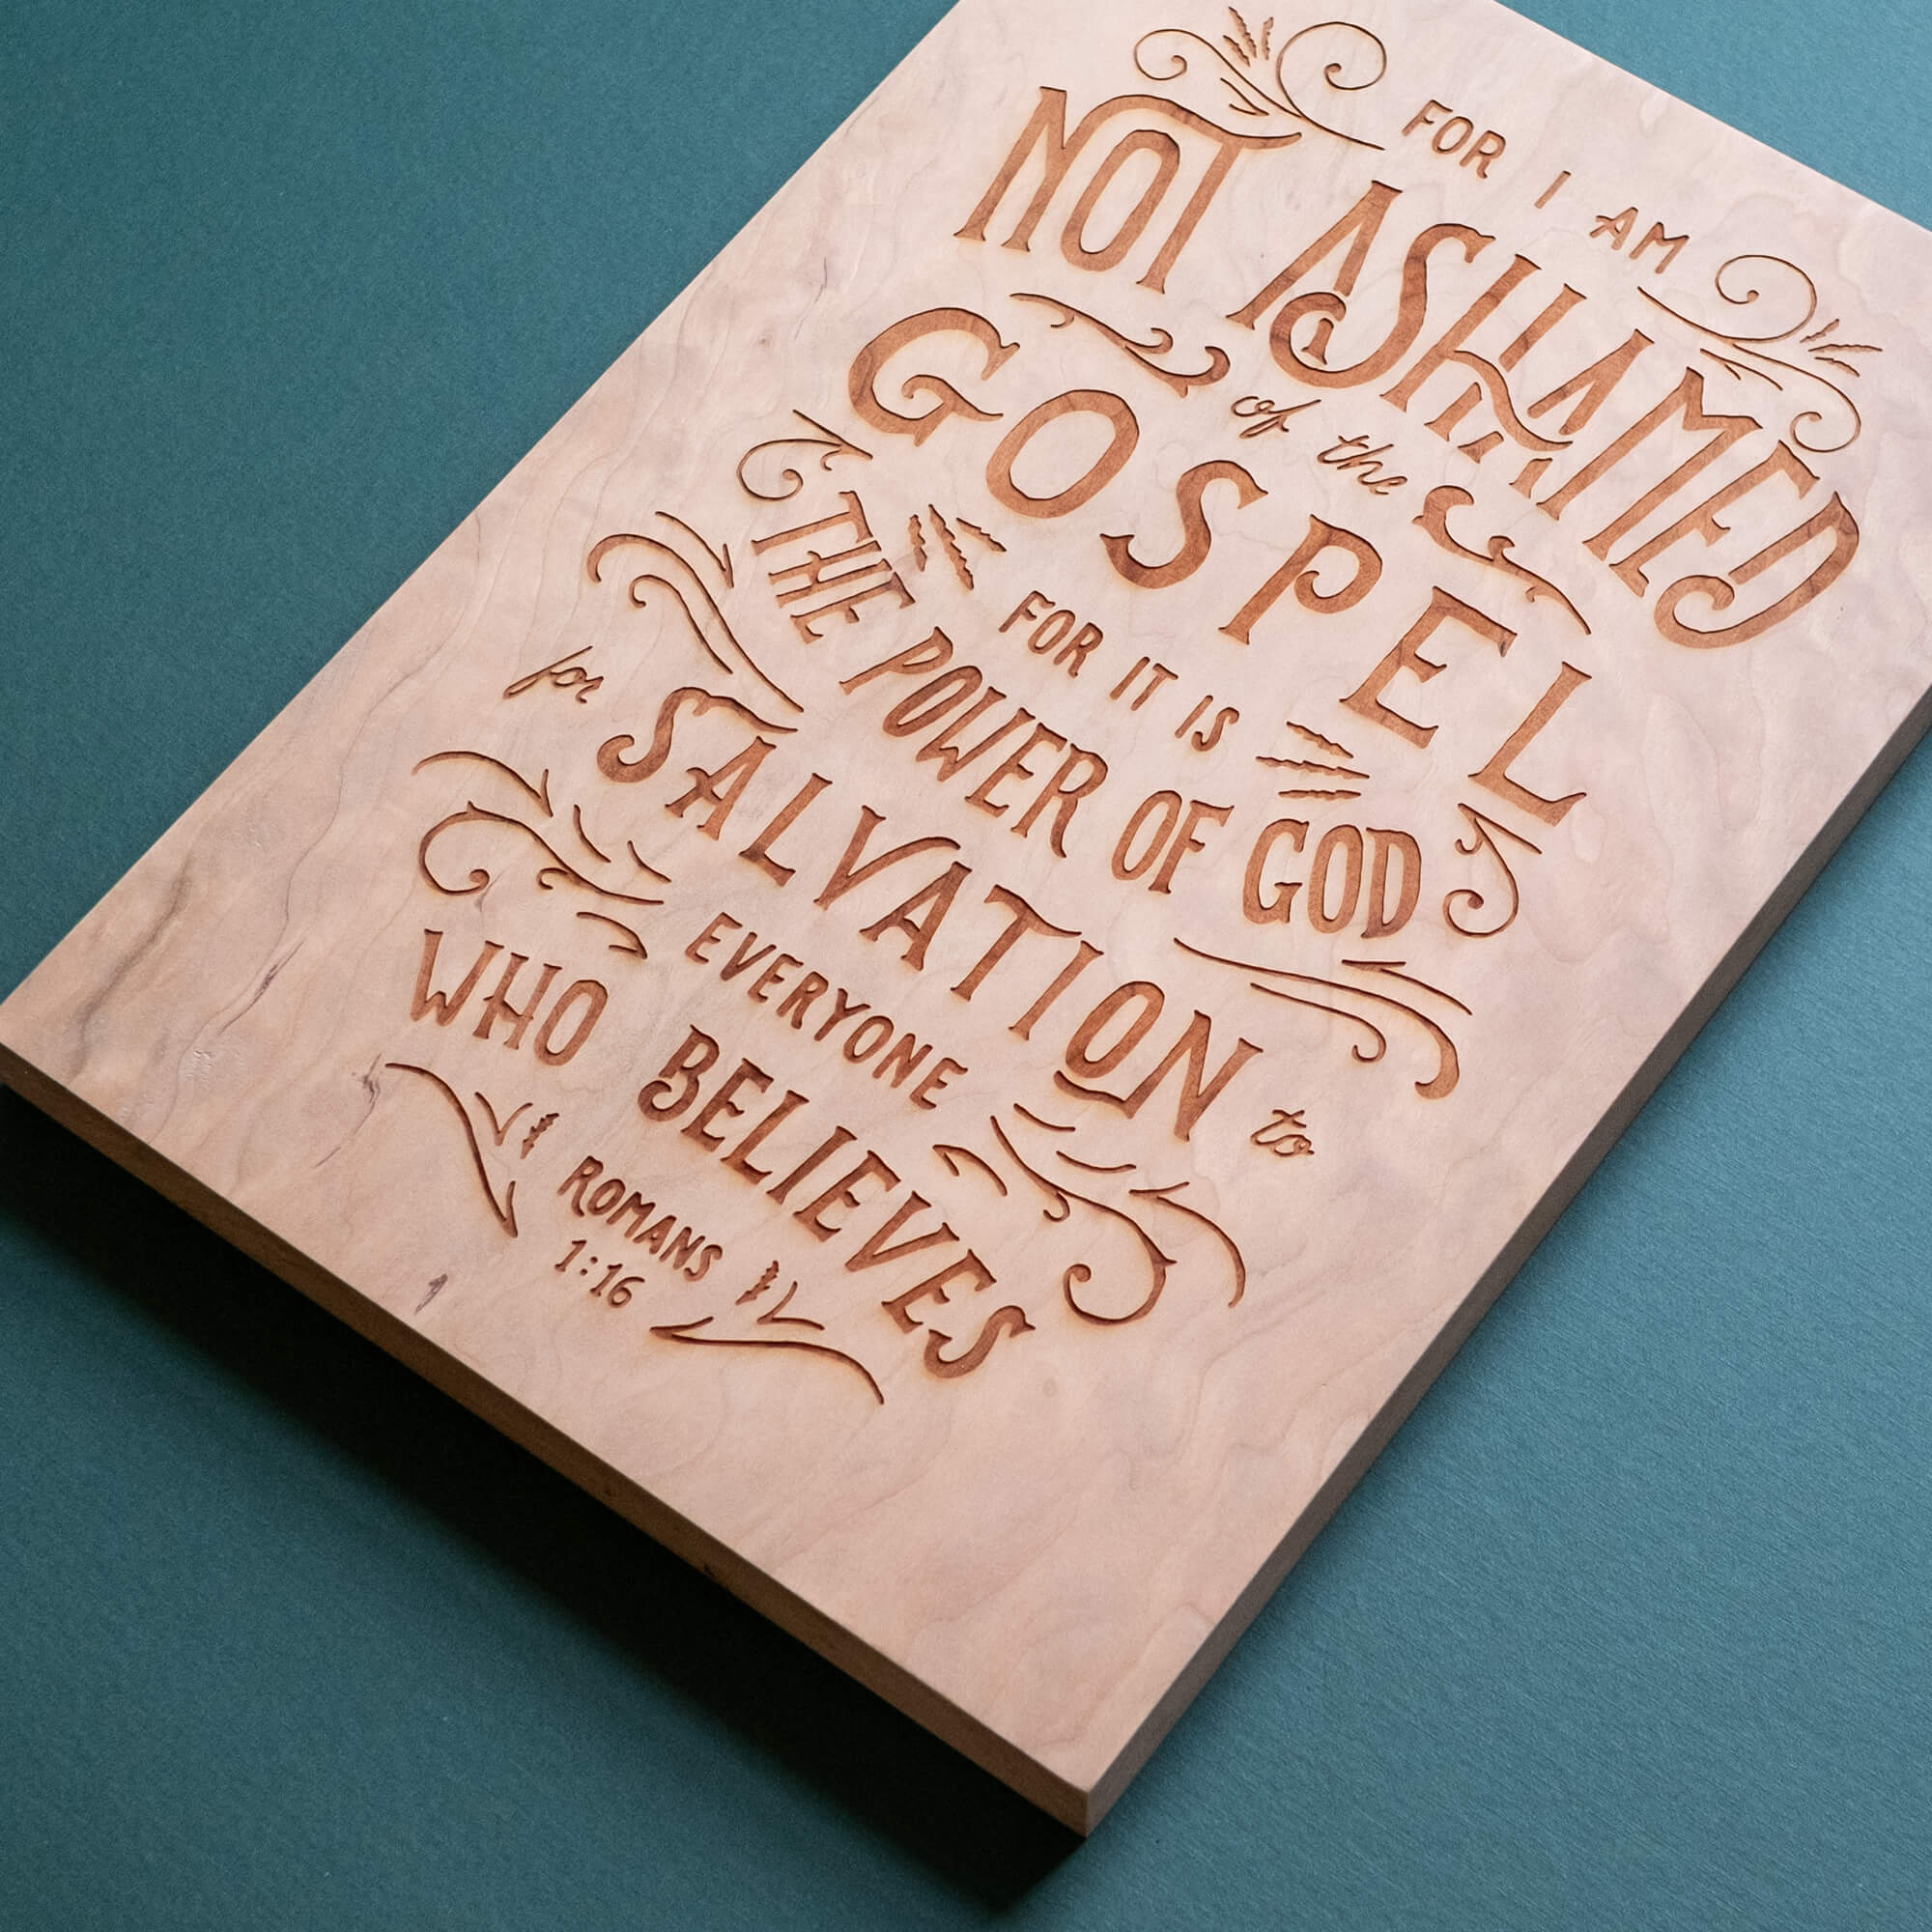 FOR I AM
NOT ASHAMED
of the
GOSPEL
FOR IT IS
THE POWER OF GOD
for SALVATION to
EVERYONE
WHO BELIEVES
ROMANS
1:16